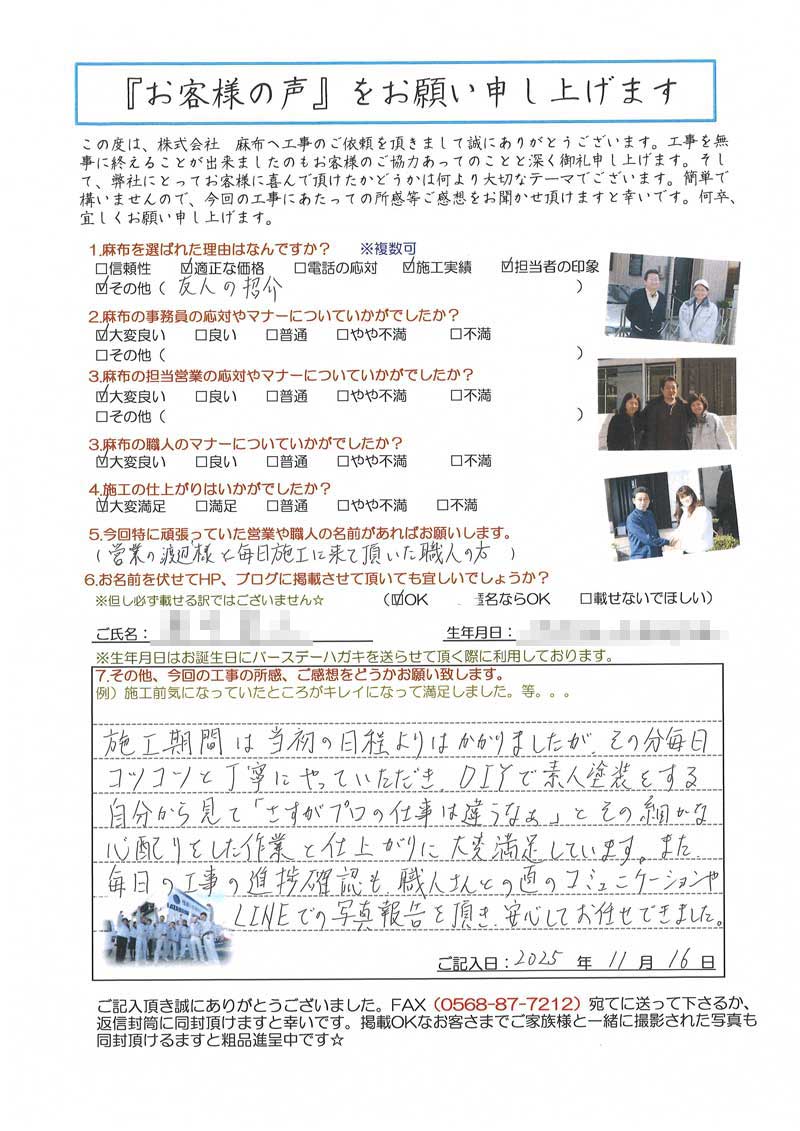 『お客様の声』をお願い申し上げます
この度は、株式会社　麻布へ工事のご依頼を頂きまして誠にありがとうございます。工事を無
事に終えることが出来ましたのもお客様のご協力あってのことと深く御礼申し上げます。そし
て、弊社にとってお客様に喜んで頂けたかどうかは何より大切なテーマでございます。簡単で
構いませんので、今回の工事にあたっての所感等ご感想をお聞かせ頂けますと幸いです。何卒、
宜しくお願い申し上げます。
1.麻布を選ばれた理由はなんですか？　※複数可
□信頼性　☑適正な価格　□電話の応対　☑施工実績　☑担当者の印象
☑その他（ 友人の紹介 ）
2.麻布の事務員の応対やマナーについていかがでしたか？
☑大変良い　□良い　□普通　□やや不満　□不満
□その他（　）
3.麻布の担当営業の応対やマナーについていかがでしたか？
☑大変良い　□良い　□普通　□やや不満　□不満
□その他（　）
3.麻布の職人のマナーについていかがでしたか？
☑大変良い　□良い　□普通　□やや不満　□不満
4.施工の仕上がりはいかがでしたか？
☑大変満足　□満足　□普通　□やや不満　□不満
5.今回特に頑張っていた営業や職人の名前があればお願いします。
（営業の渡辺様と毎日施工に来て頂いた職人の方）
6.お名前を伏せてHP、ブログに掲載させて頂いても宜しいでしょうか？
※但し必ず載せる訳ではございません☆　（☑OK　名ならOK　□載せないでほしい）
ご氏名：　生年月日：
※生年月日はお誕生日にバースデーハガキを送らせて頂く際に利用しております。
7.その他、今回の工事の所感、ご感想をどうかお願い致します。
例）施工前気になっていたところがキレイになって満足しました。等。。。
施工期間は当初の日程よりはかかりましたが、その分毎日
コツコツと丁寧にやっていただき、DIYで素人塗装をする
自分から見て「さすがプロの仕事は違うなぁ」とその細かな
心配りをした作業と仕上がりに大変満足しています。また、
毎日の工事の進捗確認も、職人さんとの直のコミュニケーションや
LINEでの写真報告を頂き、安心してお任せできました。
ご記入日：2025 年 11 月 16 日
ご記入頂き誠にありがとうございました。FAX（0568-87-7212）宛てに送って下さるか、
返信封筒に同封頂けますと幸いです。掲載OKなお客さまでご家族様と一緒に撮影された写真も
同封頂けるますと粗品進呈中です☆